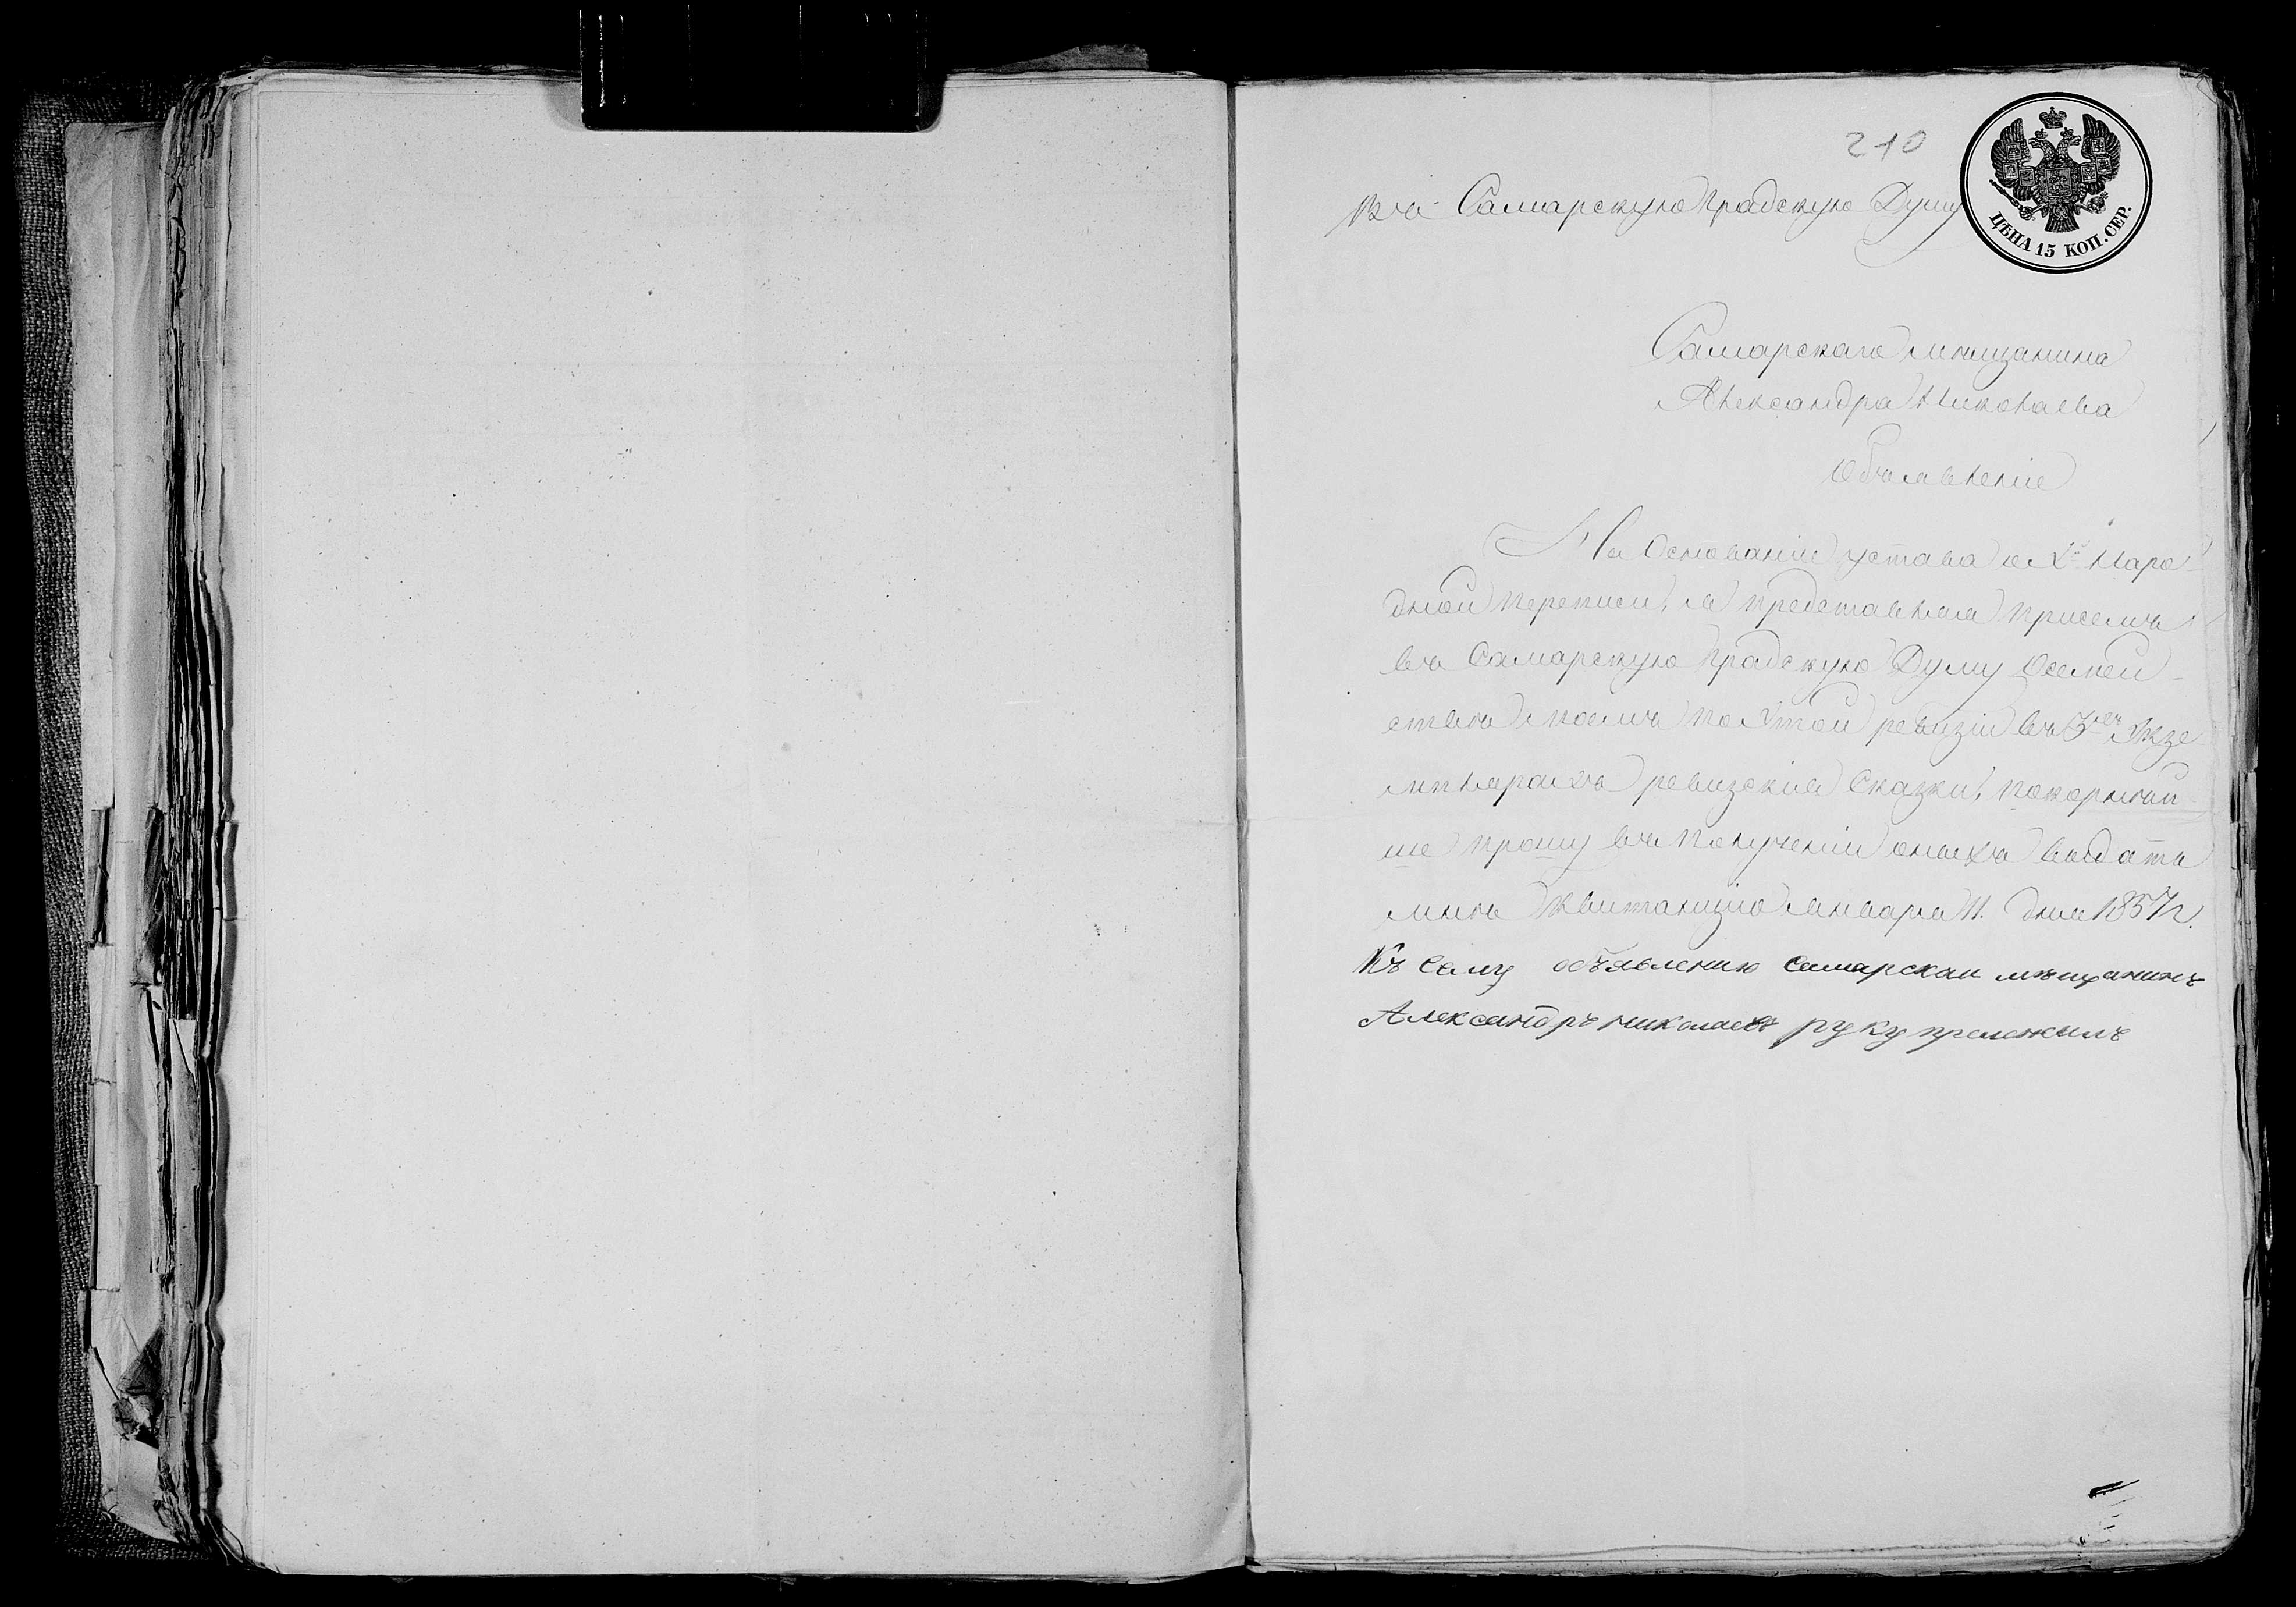 210
ЦѢНА 15 КОП. СЕР.
Въ Самарскую Градскую Думу
Самарскаго мещанина
Александра Николаева
Объявленіе
На Основаніи устава о Х.й Наро-
дной переписи, я представляя присемъ
въ Самарскую Градскую Думу Осемей-
ствѣ моемъ по Х той ревизіи въ 3хъ Экзе-
мплярахъ ревизскія Сказки, покорнѣй-
ше прошу въ Полученіи оныхъ выдать
мнѣ Квитанцію Января 11. дня 1857 г.
Къ Сему объявлению Самарскаи мѣщанинъ
Александръ николаевъ руку преложилъ